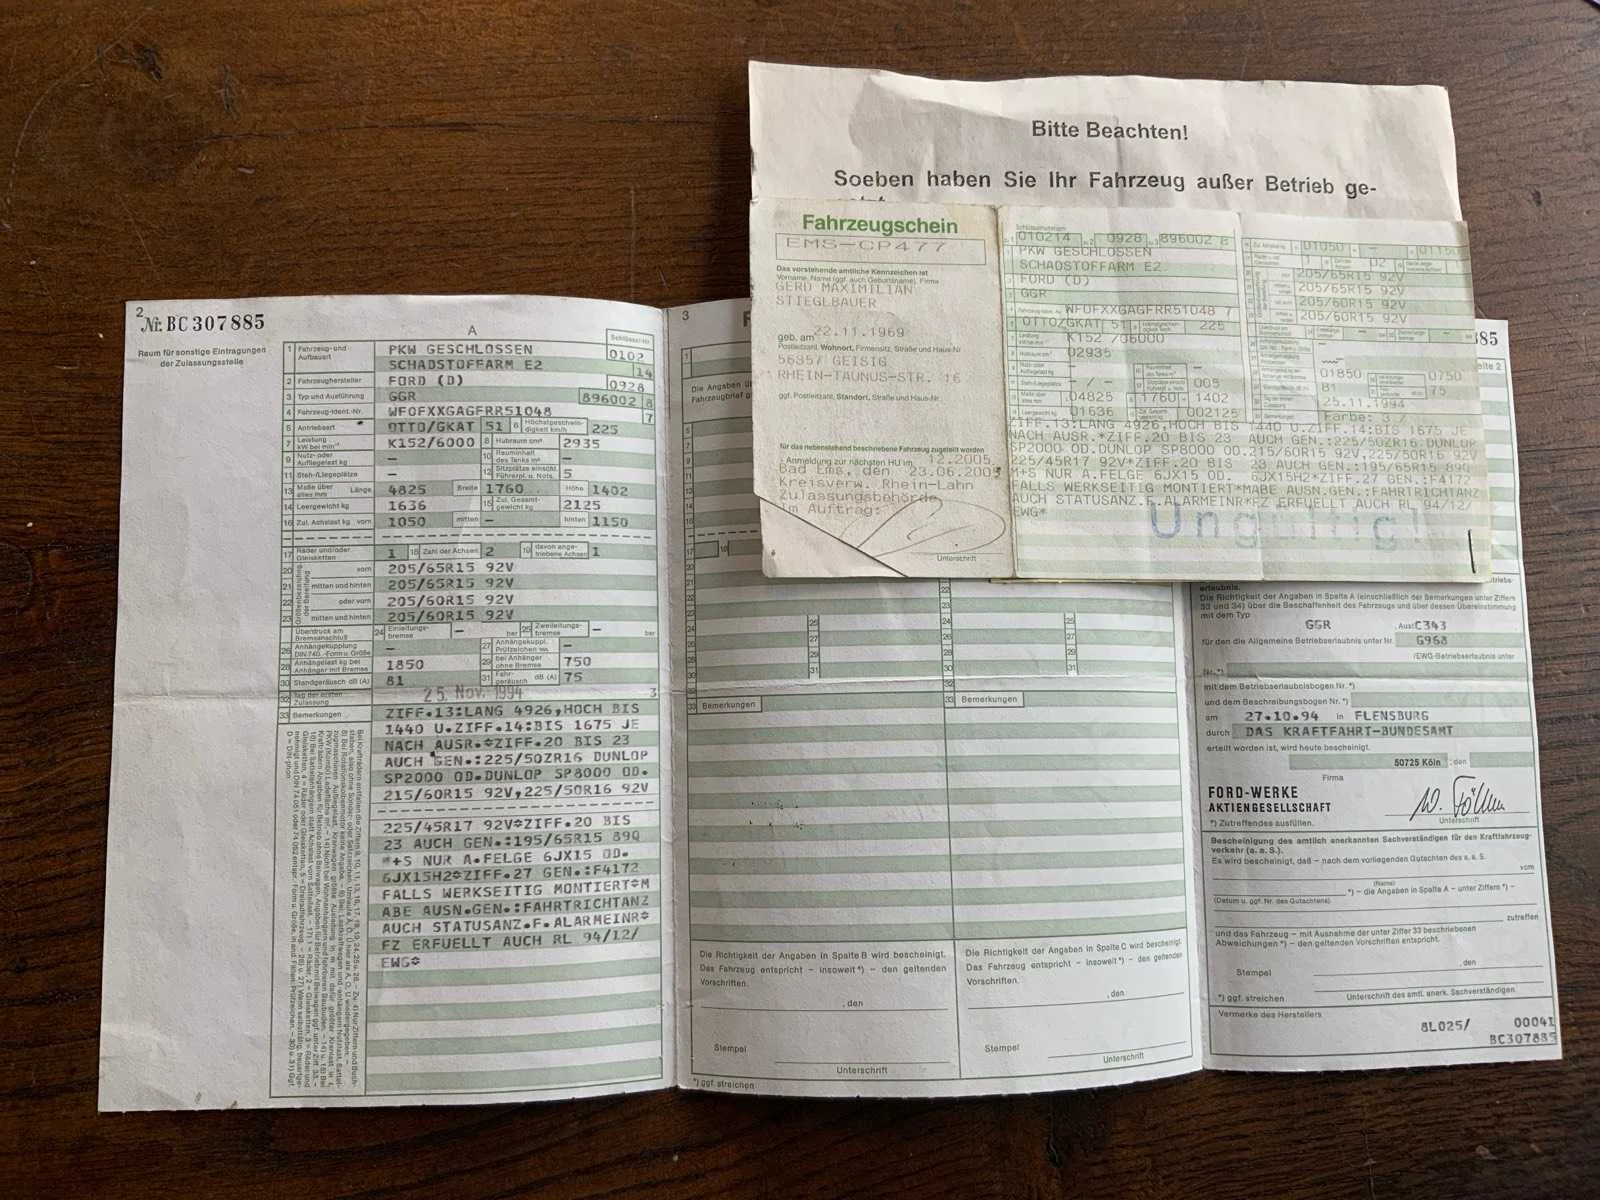 Bitte Beachten!
Soeben haben Sie Ihr Fahrzeug außer Betrieb ge-
Fahrzeugschein
EMS-CP477
Das vorstehende amtliche Kennzeichen ist
Vorname, Name (ggf. auch Geburtsname), Firma
GERD MAXIMILIAN
STIEGLBAUER
geb. am 22.11.1969
Postleitzahl, Wohnort, Firmensitz, Straße und Haus-Nr
56357 GEISIG
RHEIN-TAUNUS-STR. 16
ggf. Postleitzahl, Standort, Straße und Haus-Nr.
für das nebenstehend beschriebene Fahrzeug zugeteilt worden
Anmeldung zur nächsten HU im 12.2005
Bad Ems, den 23.06.2003
Kreisverw. Rhein-Lahn
Zulassungsbehörde
Im Auftrag:
Unterschrift
010214 0928 896002 8
PKW GESCHLOSSEN
SCHADSTOFFARM E2
FORD (D)
GGR
WF0FXXGAGFRR51048 7
OTTO/GKAT 51 225
K152 /06000
02935
- / - 005
04825 1760 1402
01636 002125
01050 - 01150
1 02
205/65R15 92V
205/65R15 92V
205/60R15 92V
205/60R15 92V
01850 0750
81 75
25.11.1994
Farbe:
ZIFF.13:LANG 4926,HOCH BIS 1440 U.ZIFF.14:BIS 1675 JE
NACH AUSR.*ZIFF.20 BIS 23 AUCH GEN.:225/50ZR16 DUNLOP
SP2000 OD.DUNLOP SP8000 OD.215/60R15 92V,225/50R16 92V
225/45R17 92V*ZIFF.20 BIS 23 AUCH GEN.:195/65R15 89Q
M+S NUR A.FELGE 6JX15 OD. 6JX15H2*ZIFF.27 GEN.:F4172
FALLS WERKSEITIG MONTIERT*MABE AUSN.GEN.:FAHRTRICHTANZ
AUCH STATUSANZ.F.ALARMEINR*FZ ERFUELLT AUCH RL 94/12/
EWG*
Ungültig!
2
Nr. BC 307885
Raum für sonstige Eintragungen
der Zulassungsstelle
A
Schlüssel-Nr.
1 Fahrzeug- und Aufbauart PKW GESCHLOSSEN 0102
SCHADSTOFFARM E2 14
2 Fahrzeughersteller FORD (D) 0928
3 Typ und Ausführung GGR 896002 8
4 Fahrzeug-Ident.-Nr. WF0FXXGAGFRR51048 7
5 Antriebsart OTTO/GKAT 51 6 Höchstgeschwindigkeit km/h 225
7 Leistung kW bei min⁻¹ K152/6000 8 Hubraum cm³ 2935
9 Nutz- oder Aufliegelast kg – 10 Rauminhalt des Tanks m³ –
11 Steh-/Liegeplätze – 12 Sitzplätze einschl. Führerpl. u. Nots. 5
13 Maße über alles mm Länge 4825 Breite 1760 Höhe 1402
14 Leergewicht kg 1636 15 Zul. Gesamtgewicht kg 2125
16 Zul. Achslast kg vorn 1050 mitten – hinten 1150
17 Räder und/oder Gleisketten 1 18 Zahl der Achsen 2 19 davon angetriebene Achsen 1
20 vorn 205/65R15 92V
21 mitten und hinten 205/65R15 92V
22 oder vorn 205/60R15 92V
23 mitten und hinten 205/60R15 92V
Überdruck am Bremsanschluß 24 Einleitungsbremse – bar 25 Zweileitungsbremse – bar
26 Anhängekupplung DIN 740..-Form u. Größe – 27 Anhängekuppl. Prüfzeichen
28 Anhängelast kg bei Anhänger mit Bremse 1850 29 bei Anhänger ohne Bremse 750
30 Standgeräusch dB (A) 81 31 Fahrgeräusch dB (A) 75
32 Tag der ersten Zulassung 25. Nov. 1994 3
33 Bemerkungen ZIFF.13:LANG 4926,HOCH BIS
1440 U.ZIFF.14:BIS 1675 JE
NACH AUSR.*ZIFF.20 BIS 23
AUCH GEN.:225/50ZR16 DUNLOP
SP2000 OD.DUNLOP SP8000 OD.
215/60R15 92V,225/50R16 92V
225/45R17 92V*ZIFF.20 BIS
23 AUCH GEN.:195/65R15 89Q
*+S NUR A.FELGE 6JX15 OD.
6JX15H2*ZIFF.27 GEN.:F4172
FALLS WERKSEITIG MONTIERT*M
ABE AUSN.GEN.:FAHRTRICHTANZ
AUCH STATUSANZ.F.ALARMEINR*
FZ ERFUELLT AUCH RL 94/12/
EWG*
3
Die Angaben
Fahrzeugbrief
33 Bemerkungen
33 Bemerkungen
Die Richtigkeit der Angaben in Spalte B wird bescheinigt.
Das Fahrzeug entspricht – insoweit *) – den geltenden
Vorschriften.
, den
Stempel
Unterschrift
*) ggf. streichen
Die Richtigkeit der Angaben in Spalte C wird bescheinigt.
Das Fahrzeug entspricht – insoweit *) – den geltenden
Vorschriften.
, den
Stempel
Unterschrift
85
erlaubnis.
Die Richtigkeit der Angaben in Spalte A (einschließlich der Bemerkungen unter Ziffern
33 und 34) über die Beschaffenheit des Fahrzeugs und über dessen Übereinstimmung
mit dem Typ
GGR , Ausf. C343
für den die Allgemeine Betriebserlaubnis unter Nr. G968
/EWG-Betriebserlaubnis unter
Nr. *)
mit dem Betriebserlaubnisbogen Nr. *)
und dem Beschreibungsbogen Nr. *)
am 27.10.94 in FLENSBURG
durch DAS KRAFTFAHRT-BUNDESAMT
erteilt worden ist, wird heute bescheinigt.
50725 Köln , den
Firma
FORD-WERKE
AKTIENGESELLSCHAFT
Unterschrift
*) Zutreffendes ausfüllen.
Bescheinigung des amtlich anerkannten Sachverständigen für den Kraftfahrzeug-
verkehr (a. a. S.).
Es wird bescheinigt, daß – nach dem vorliegenden Gutachten des a. a. S.
vom
(Name)
*) – die Angaben in Spalte A – unter Ziffern *) –
(Datum u. ggf. Nr. des Gutachtens)
zutreffen
und das Fahrzeug – mit Ausnahme der unter Ziffer 33 beschriebenen
Abweichungen *) – den geltenden Vorschriften entspricht.
, den
Stempel
*) ggf. streichen
Unterschrift des amtl. anerk. Sachverständigen
Vermerke des Herstellers
8L025/ 00041
BC307885